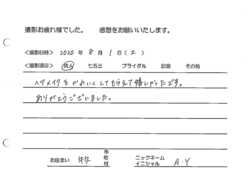 撮影お疲れ様でした。 感想をお願いいたします。
<撮影日時> 2020 年 8 月 1 日 (土)
<撮影項目> 成人 七五三 ブライダル 記念 その他
ヘアメイクをかわいくしてもらえて嬉しかったです。
ありがとうございました。
お住まい 市町村 ニックネーム イニシャル A.Y